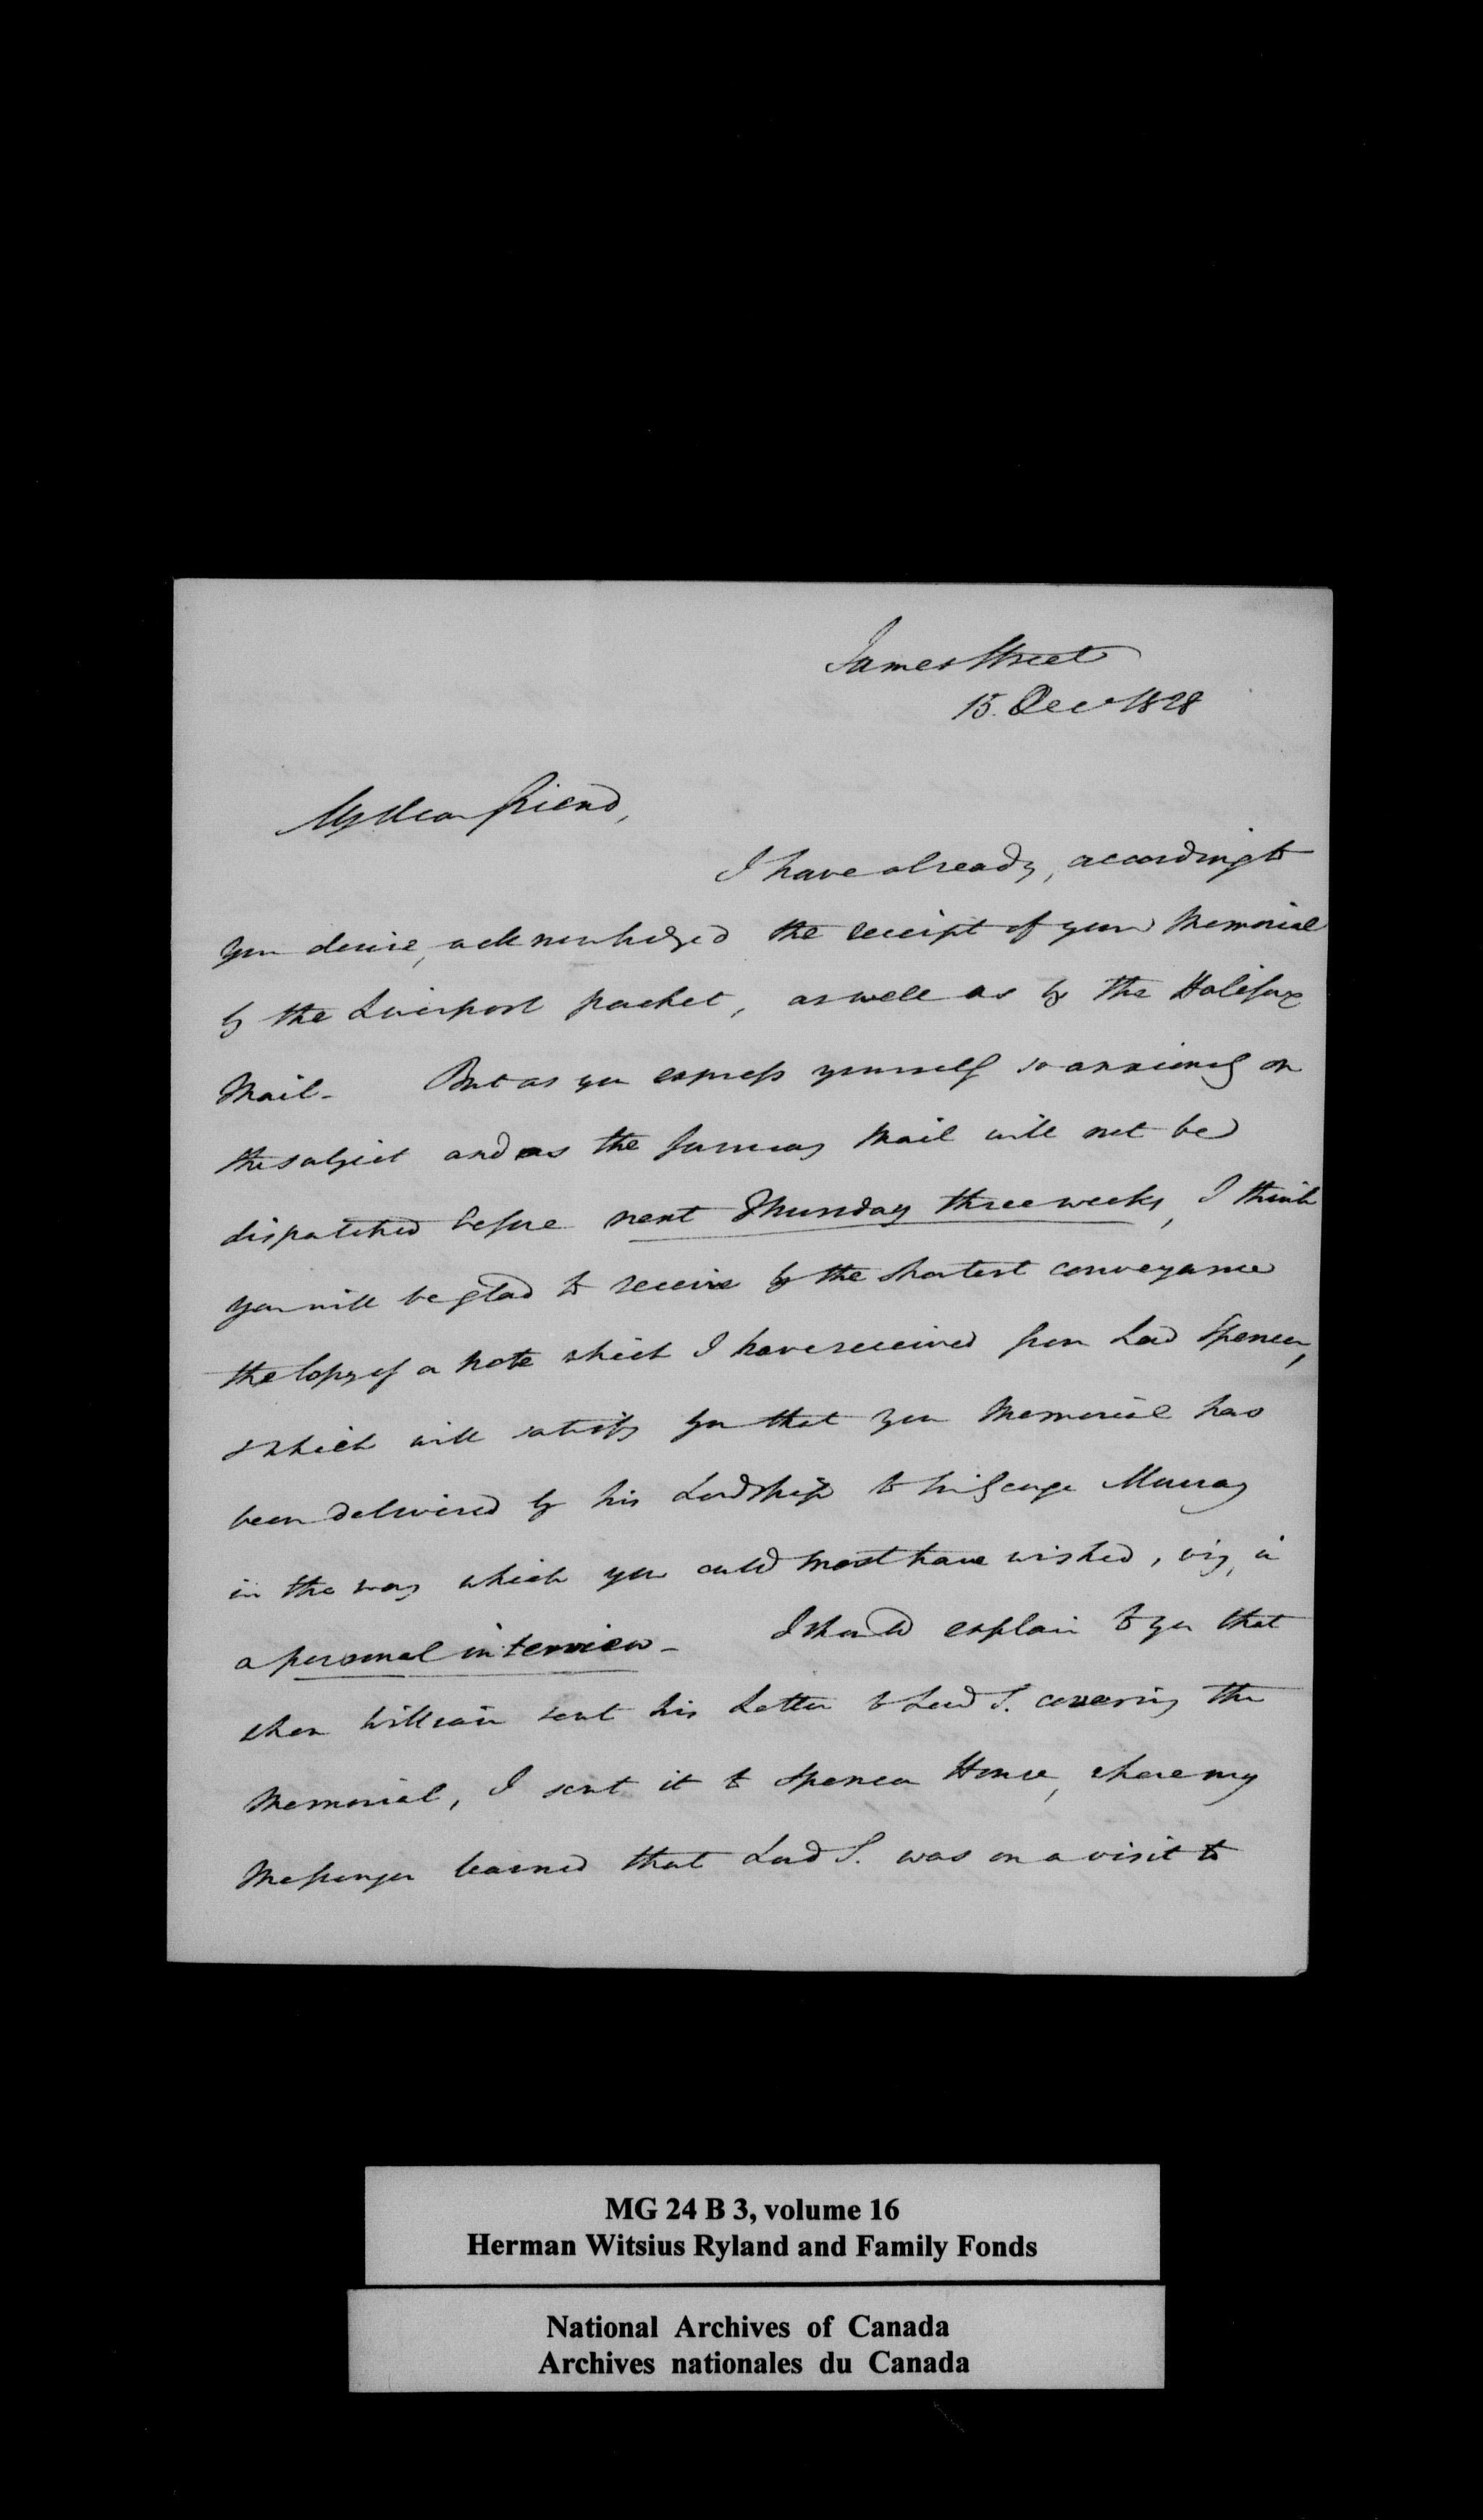 James Street
15. Decr 1828
My dear friend,
I have already, according to
your desire, acknowledged the receipt of your Memorial
by the Liverpool packet, as well as by the Halifax
Mail - But as you express yourself so anxiously on
the subject and as the January Mail will not be
dispatched before next Thursday three weeks, I think
you will be glad to receive by the shortest conveyance
the Copy of a Note which I have received from Lord Spencer,
which will satisfy you that your Memorial has
been delivered by his Lordship to Sir George Murray
in the way which you could most have wished, viz, in
a personal interview - I should explain to you that
when William sent his Letter to Lord S. covering the
Memorial, I sent it to Spencer House, where my
Messenger learned that Lord S. was on a visit to
MG 24 B 3, volume 16
Herman Witsius Ryland and Family Fonds
National Archives of Canada
Archives nationales du Canada